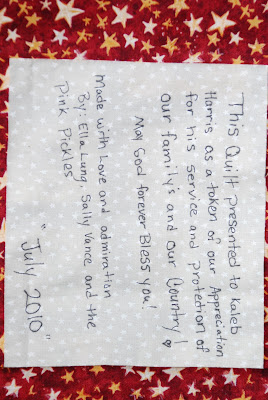 This Quilt presented to Kaleb
Harris as a token of our Appreciation
for his service and protection of
our family's and our Country!
May God forever Bless you!
Made with Love and admiration
By: Ella Lung, Sally Vance and the
Pink Pickles
"July 2010"